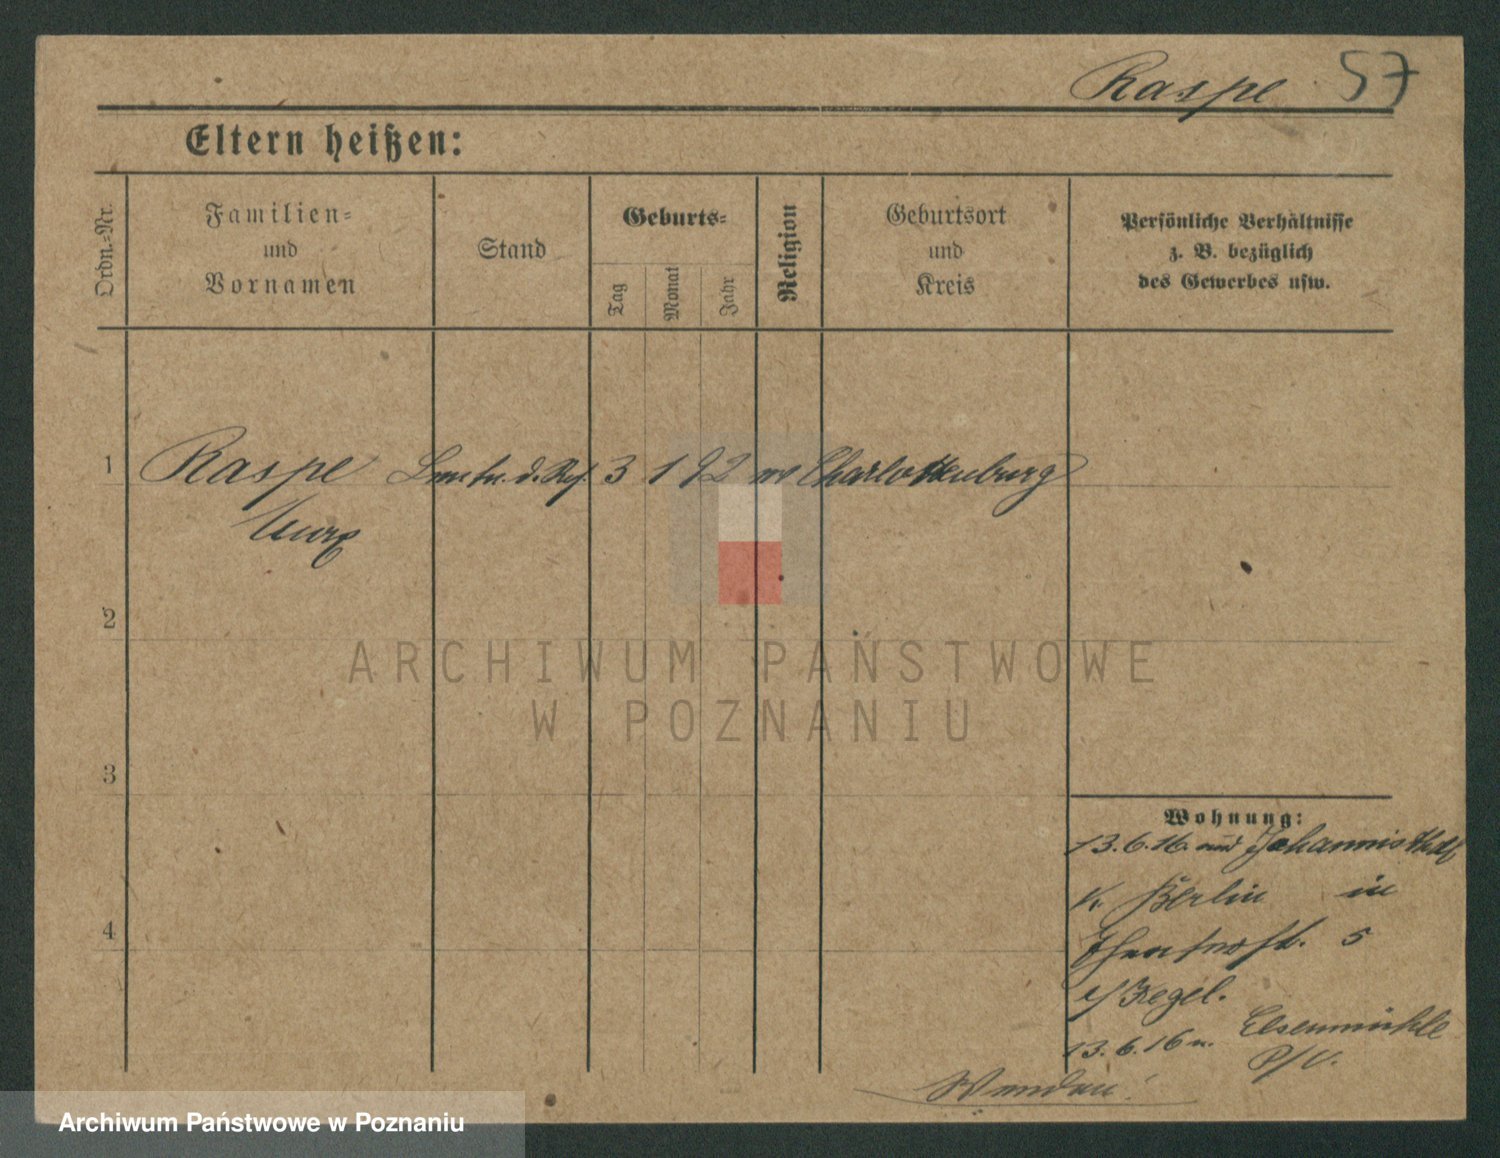 Raspe 57
Eltern heißen:
Ordn.-Nr.
Familien-
und
Vornamen
Stand
Geburts-
Tag
Monat
Jahr
Religion
Geburtsort
und
Kreis
Persönliche Verhältnisse
z. B. bezüglich
des Gewerbes usw.
1 Raspe d. Res. 3 1 92 Charlottenburg
2
3
4
Wohnung:
13.6.16.
Berlin in
5
Kegel.
13.6.16 n. Elsenmühle
ARCHIWUM PAŃSTWOWE
W POZNANIU
Archiwum Państwowe w Poznaniu